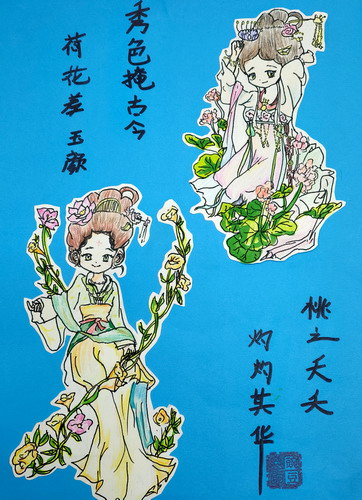 秀色掩古今
荷花羞玉颜
桃之夭夭
灼灼其华